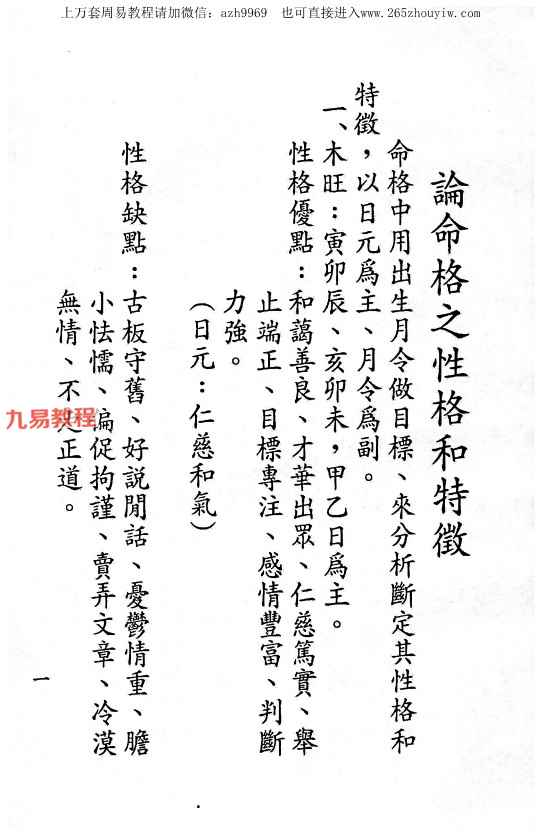 上万套周易教程请加微信：azh9969　也可直接进入www.265zhouyiw.com
論命格之性格和特徵
命格中用出生月令做目標、來分析斷定其性格和
特徵，以日元爲主、月令爲副。
一、木旺：寅卯辰、亥卯未，甲乙日爲主。
性格優點：和藹善良、才華出眾、仁慈篤實、舉
止端正、目標專注、感情豐富、判斷
力強。
（日元：仁慈和氣）
性格缺點：古板守舊、好說閒話、憂鬱情重、膽
小怯懦、偏促拘謹、賣弄文章、冷漠
無情、不走正道。
九易教程
一